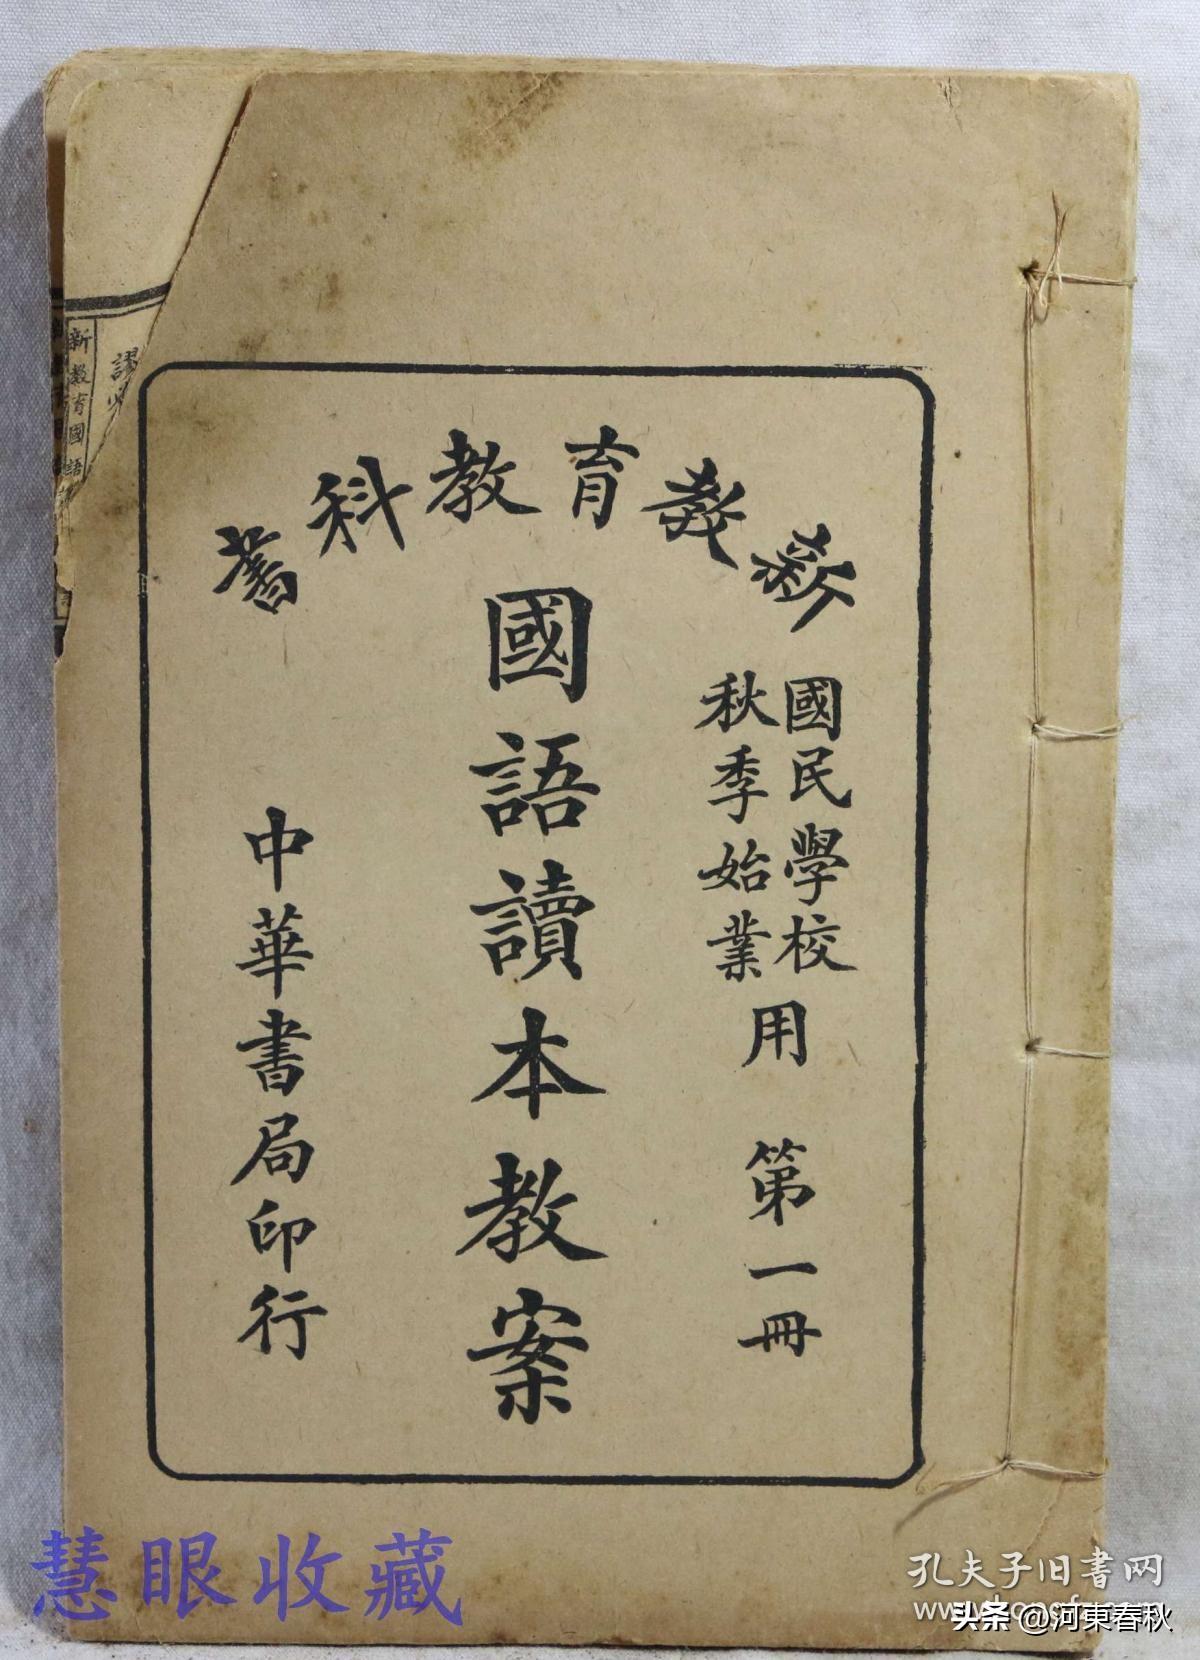 新教育教科書
國民學校
秋季始業
用　第一冊
國語讀本教案
中華書局印行
新教育國語
慧眼收藏
孔夫子旧书网
头条 @河東春秋